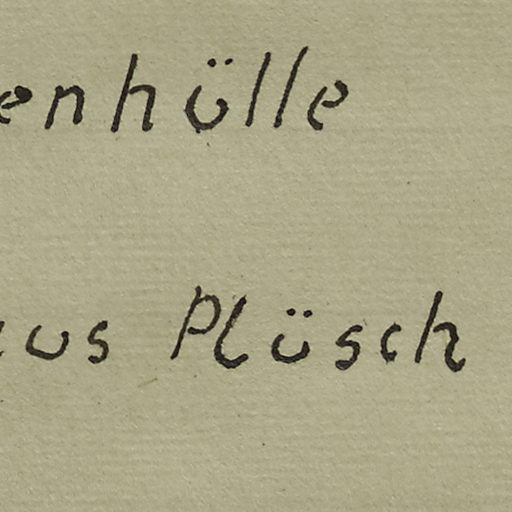 enhülle
us Plüsch